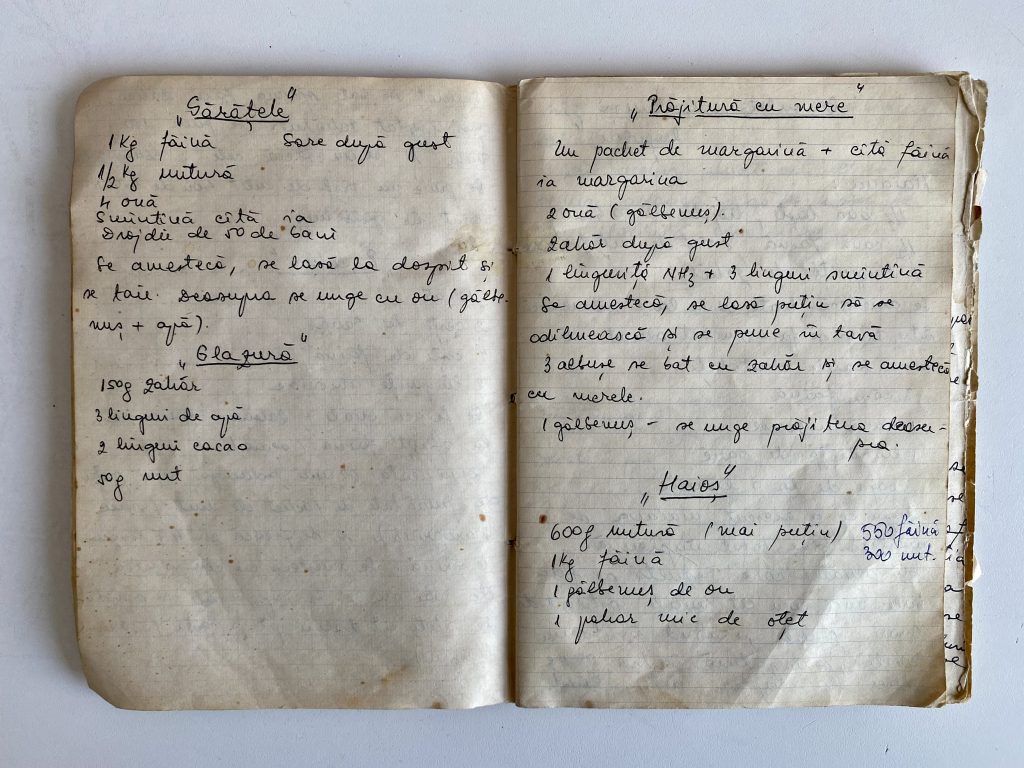 „Sărățele"
1Kg făină Sare după gust
1/2 Kg untură
4 ouă
Smîntînă cîtă ia
Drojdie de 50 de bani
Se amestecă, se lasă la dospit și
se taie. Deasupra se unge cu ou (gălbe-
nuș + apă).
„Glazură"
150g zahăr
3 linguri de apă
2 linguri cacao
50g unt
„Prăjitură cu mere"
Un pachet de margarină + cîtă făină
ia margarina
2 ouă (gălbenuș).
Zahăr după gust
1 linguriță NH3 + 3 linguri smîntînă
Se amestecă, se lasă puțin să se
odihnească și se pune în tavă
3 albușe se bat cu zahăr și se amestecă
cu merele.
1 gălbenuș – se unge prăjitura deasu-
pra.
„Haioș"
600g untură (mai puțin) 550 făină
1Kg făină 300 unt.
1 gălbenuș de ou
1 pahar mic de oțet